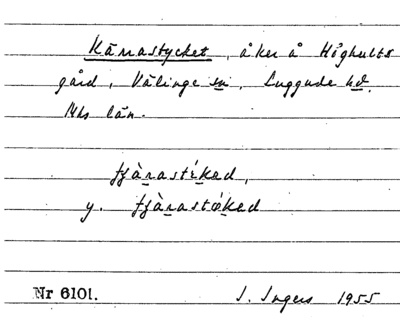 Kärrastycket, åker å Höghults
gård, Välinge sn, Luggude hd.
Mhs län.
tjàrastýkəd,
y. tjàrastøkəd
Nr 6101. I. Ingers 1955